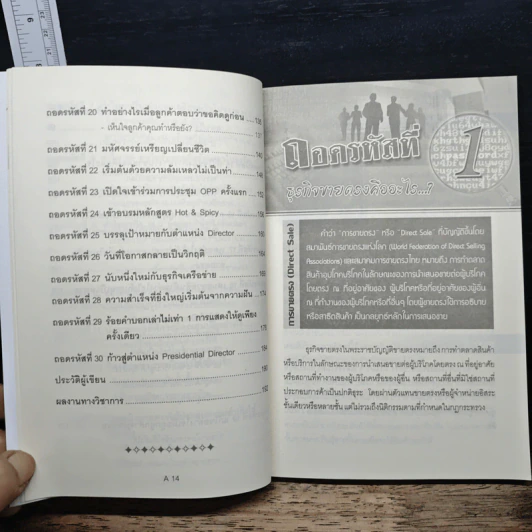 ถอดรหัสที่ 20 ทำอย่างไรเมื่อลูกค้าตอบว่าขอคิดดูก่อน
- เห็นใจลูกค้าคุณทำหรือยัง?
ถอดรหัสที่ 21 มหัศจรรย์เหรียญเปลี่ยนชีวิต
ถอดรหัสที่ 22 เริ่มต้นด้วยความล้มเหลวไม่เป็นท่า
ถอดรหัสที่ 23 เปิดใจเข้าร่วมการประชุม OPP ครั้งแรก
ถอดรหัสที่ 24 เข้าอบรมหลักสูตร Hot & Spicy
ถอดรหัสที่ 25 บรรลุเป้าหมายกับตำแหน่ง Director
ถอดรหัสที่ 26 วันที่โอกาสกลายเป็นวิกฤติ
ถอดรหัสที่ 27 นับหนึ่งใหม่กับธุรกิจเครือข่าย
ถอดรหัสที่ 28 ความสำเร็จที่ยิ่งใหญ่เริ่มต้นจากความฝัน
ถอดรหัสที่ 29 ร้อยคำบอกเล่าไม่เท่า 1 การแสดงให้ดูเพียง
ครั้งเดียว
ถอดรหัสที่ 30 ก้าวสู่ตำแหน่ง Presidential Director
ประวัติผู้เขียน
ผลงานทางวิชาการ
A 14
ถอดรหัสที่ 1
ธุรกิจขายตรงคืออะไร...?
การขายตรง (Direct Sale)
คำว่า "การขายตรง" หรือ "Direct Sale" ที่บัญญัติขึ้นโดย
สมาพันธ์การขายตรงแห่งโลก (World Federation of Direct Selling
Associations) และสมาคมการขายตรงไทย หมายถึง การทำตลาด
สินค้าอุปโภคบริโภคในลักษณะของการนำเสนอขายต่อผู้บริโภค
โดยตรง ณ ที่อยู่อาศัยของ ผู้บริโภคหรือที่อยู่อาศัยของผู้อื่น
ณ ที่ทำงานของผู้บริโภคหรือที่อื่นๆ โดยผู้ขายตรงใช้การอธิบาย
หรือสาธิตสินค้า เป็นกลยุทธ์หลักในการเสนอขาย
ธุรกิจขายตรงในพระราชบัญญัติขายตรงหมายถึง การทำตลาดสินค้า
หรือบริการในลักษณะของการนำเสนอขายต่อผู้บริโภคโดยตรง ณ ที่อยู่อาศัย
หรือสถานที่ทำงานของผู้บริโภคหรือของผู้อื่น หรือสถานที่อื่นที่มิใช่สถานที่
ประกอบการค้าเป็นปกติธุระ โดยผ่านตัวแทนขายตรงหรือผู้จำหน่ายอิสระ
ชั้นเดียวหรือหลายชั้น แต่ไม่รวมถึงนิติกรรมตามที่กำหนดในกฎกระทรวง